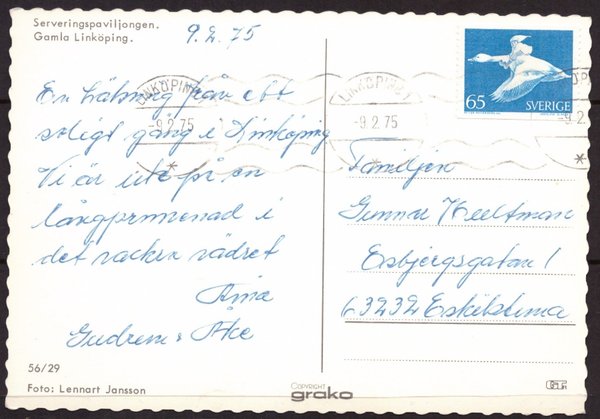 Serveringspaviljongen.
Gamla Linköping.
9.2.75
En hälsning från ett
soligt gång i Linköping
Vi är ute på en
långpromenad i
det vackra vädret
Gudrun & Åke
56/29
Foto: Lennart Jansson
COPYRIGHT
grako
65 SVERIGE
LINKÖPING
-9.2.75
LINKÖPING
-9.2.75
Familjen
Gunnar
Esbjergsgatan 1
63232 Eskilstuna